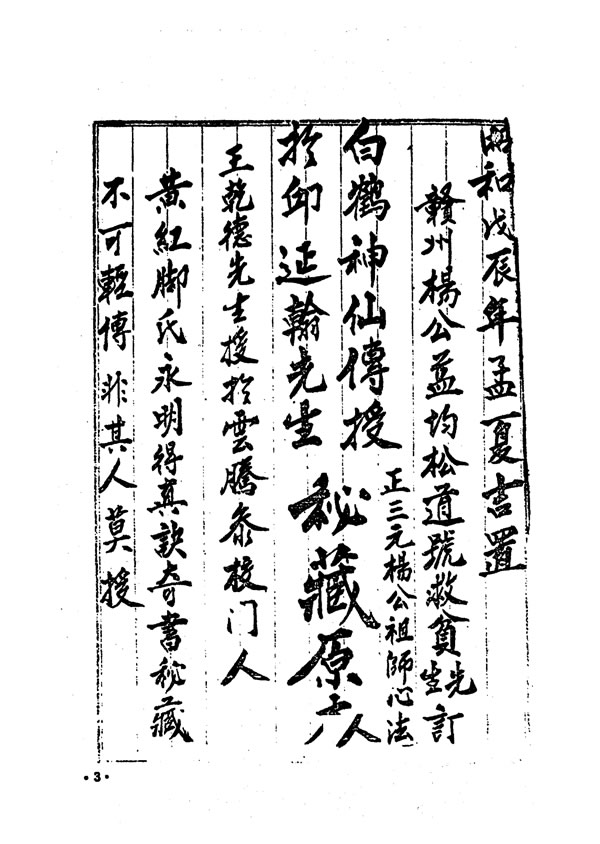 昭和戊辰年孟夏吉置
贛州楊公益均松道號救貧先生訂
白鶴神仙傳授
正三元楊公祖師心法
於邱延翰先生
秘藏原六人
王乾德先生授於雲騰叅校门人
黃紅脚氏永明得真訣奇書秘藏
不可輕傳非其人莫授
•3•